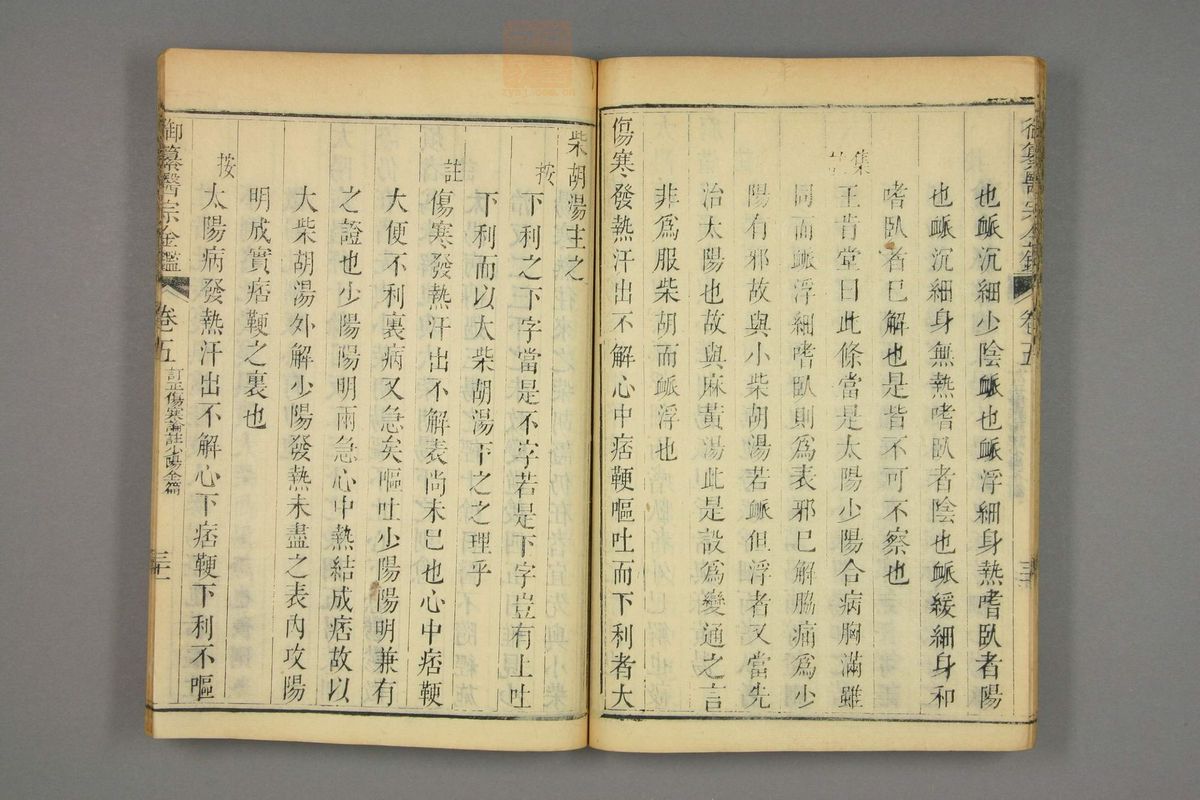 也脈沉細少陰脈也脈浮細身熱嗜臥者陽
也脈沉細身無熱嗜臥者陰也脈緩細身和
嗜臥者已解也是皆不可不察也
集
王肯堂曰此條當是太陽少陽合病胸滿雖
同而脈浮細嗜臥則爲表邪已解脇痛爲少
陽有邪故與小柴胡湯若脈但浮者又當先
治太陽也故與麻黃湯此是設爲變通之言
非爲服柴胡而脈浮也
傷寒發熱汗出不解心中痞鞕嘔吐而下利者大
柴胡湯主之
按
下利之下字當是不字若是下字豈有上吐
下利而以大柴胡湯下之之理乎
註
傷寒發熱汗出不解表尚未已也心中痞鞕
大便不利裏病又急矣嘔吐少陽陽明兼有
之證也少陽陽明兩急心中熱結成痞故以
大柴胡湯外解少陽發熱未盡之表內攻陽
明成實痞鞕之裏也
按
太陽病發熱汗出不解心下痞鞕下利不嘔
御纂醫宗金鑑
卷五
訂正傷寒論註少陽全篇